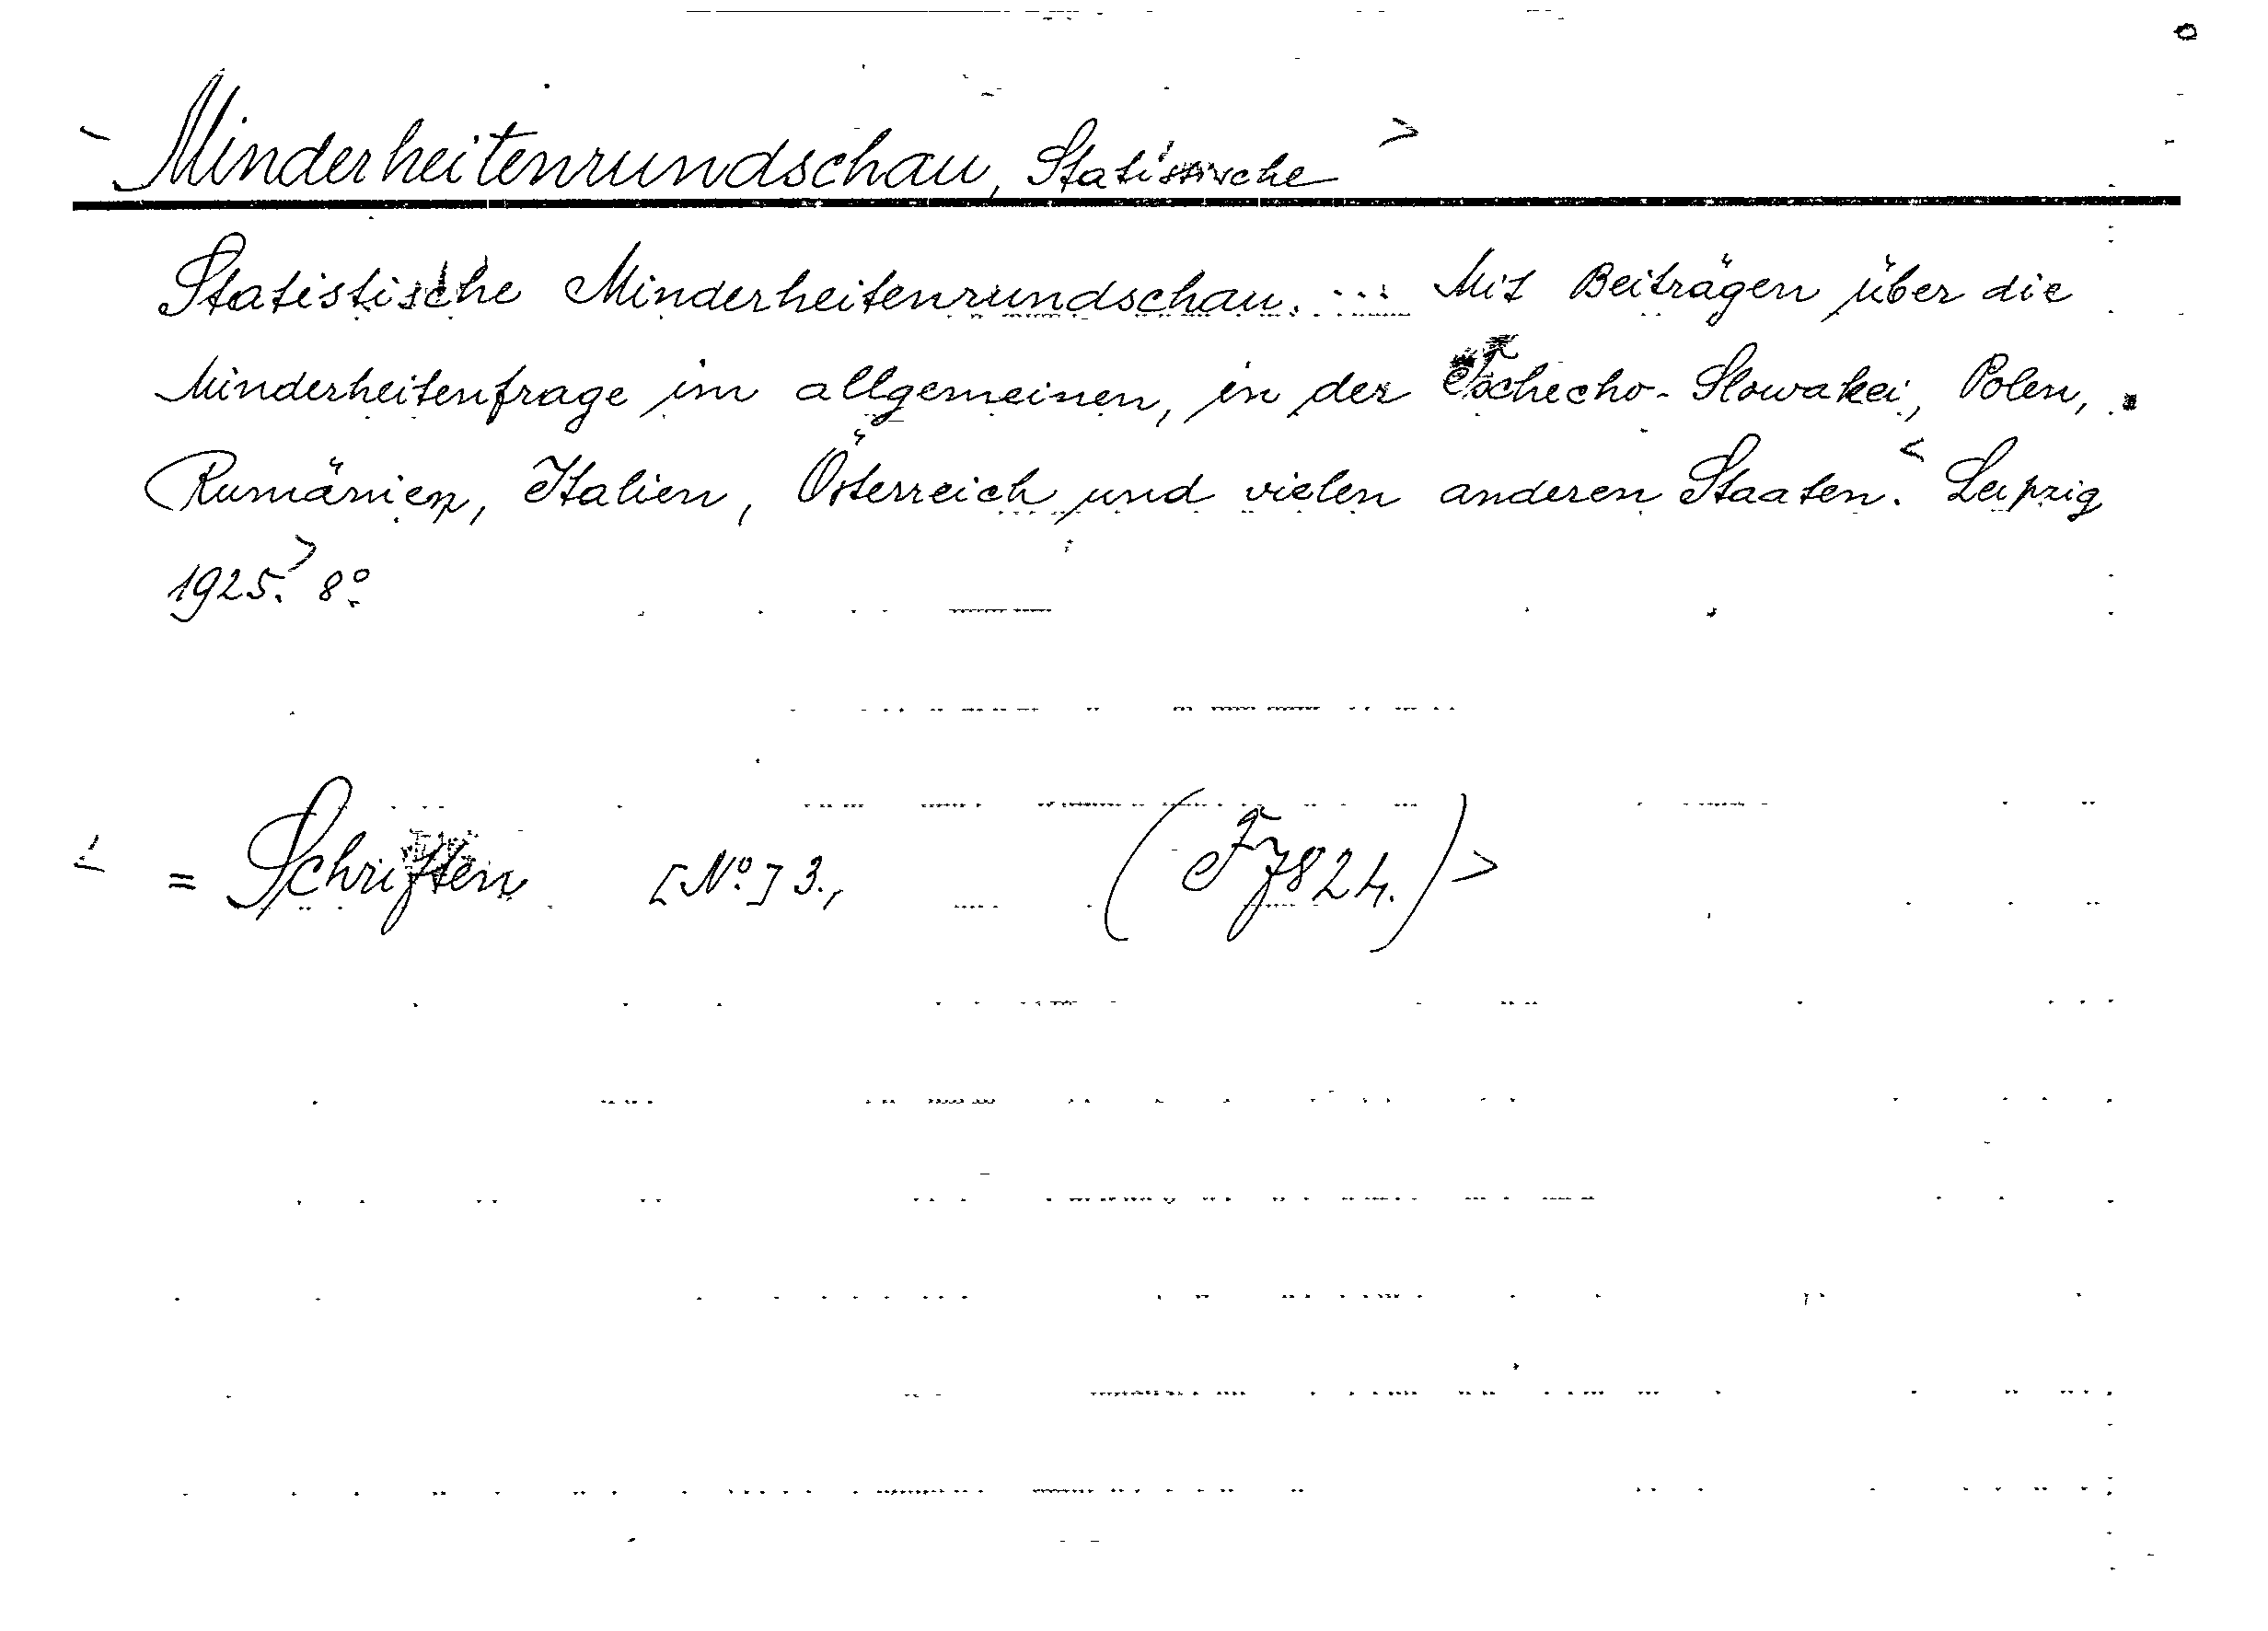 < Minderheitenrundschau, Statistische >
Statistische Minderheitenrundschau. ... Mit Beiträgen über die
Minderheitenfrage im allgemeinen, in der Tschecho-Slowakei, Polen,
Rumänien, Italien, Österreich und vielen anderen Staaten. < Leipzig
1925. > 8°.
< = Schriften [N°.] 3., (F 7824.) >